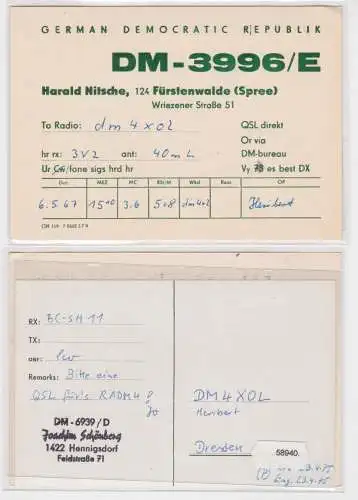 GERMAN DEMOCRATIC REPUBLIK
DM-3996/E
Harald Nitsche, 124 Fürstenwalde (Spree)
Wriezener Straße 51
To Radio: dm4xol
QSL direkt
Or via
DM-bureau
hr rx: 3V2 ant: 40mL
Ur CW/fone sigs hrd hr
Vy 73 es best DX
Dat MEZ MC RS/M Wkd Rem OP
6.5.67 15 3.6 58 Heribert
RX: EC-SH11
TX:
Remarks: Bitte eine
QSL für's RADM4!
DM-6939/D
Joachim Schönberg
1422 Hennigsdorf
Feldstraße 71
DM4XOL
Heribert
Dresden
58940.